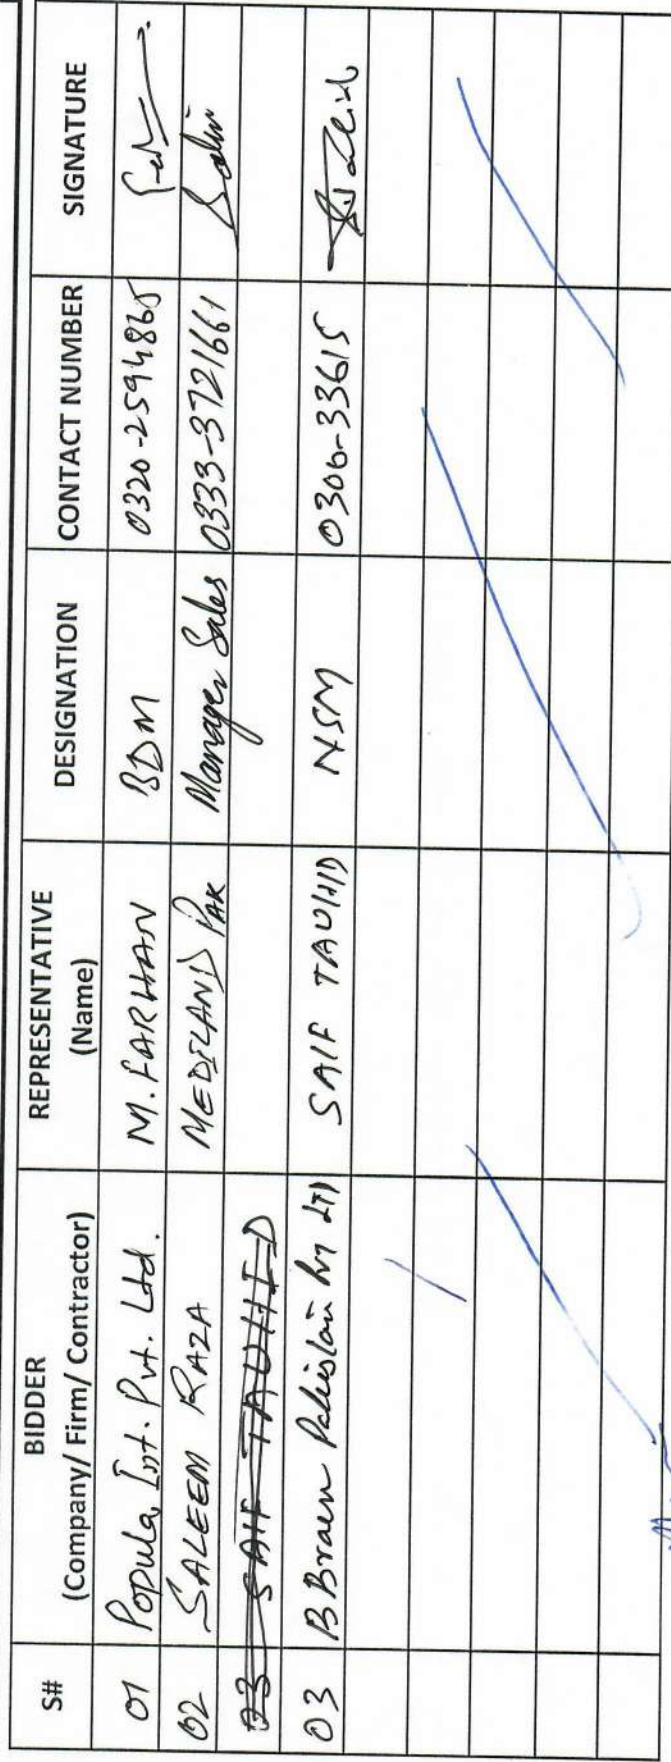 S# BIDDER (Company/ Firm/ Contractor) REPRESENTATIVE (Name) DESIGNATION CONTACT NUMBER SIGNATURE
01 Popula, Int. Pvt. Ltd. M. FARHAN BDM 0320-2594865
02 SALEEM RAZA MEDILAND PAK Manager Sales 0333-3721661
03 SAIF TAUHID
03 B Braen Pakistan Pvt LTD SAIF TAUHID NSM 0306-33615